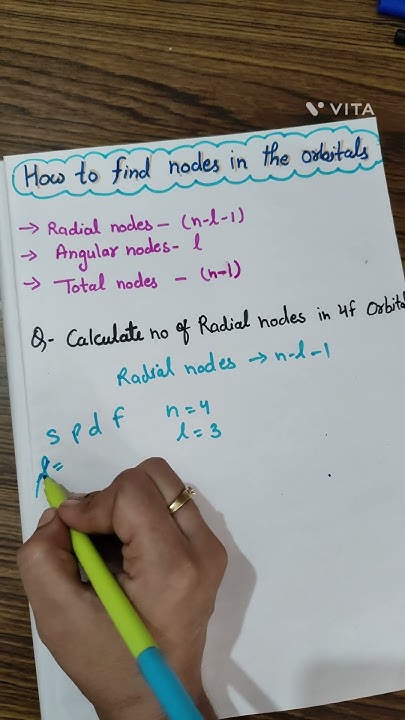 VITA
How to find nodes in the orbitals
→ Radial nodes – (n-l-1)
→ Angular nodes- l
→ Total nodes – (n-1)
Q,- Calculate no of Radial nodes in 4f Orbital
Radial nodes → n-l-1
s p d f n=4
l=3
l=